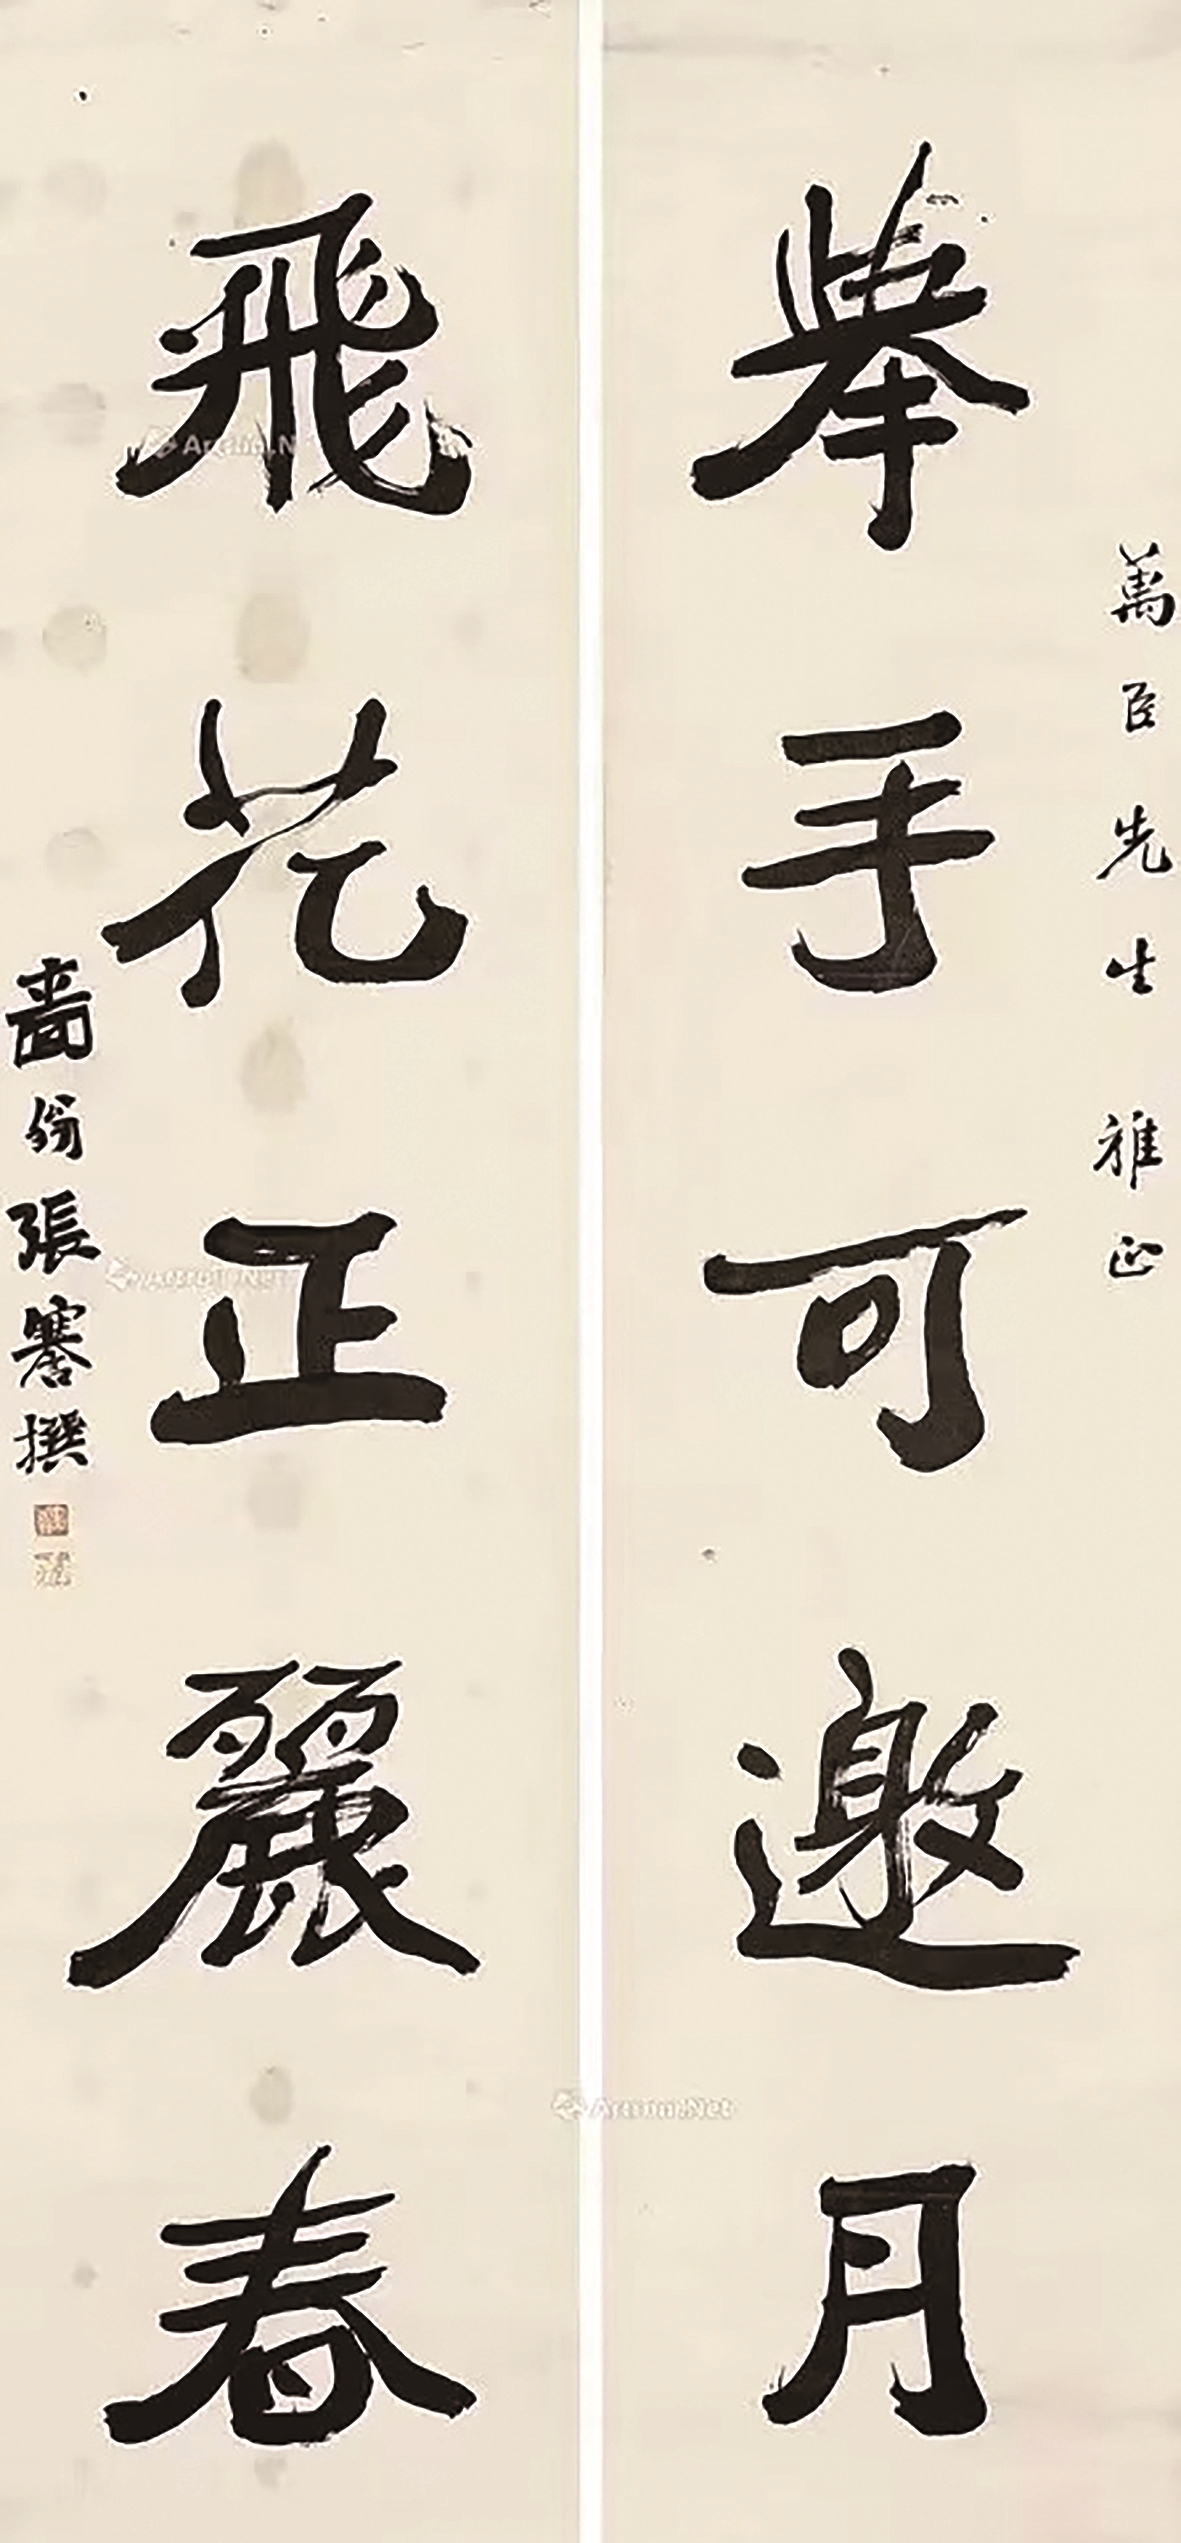 萬臣先生雅正
舉手可邀月
飛花正麗春
嗇翁張謇撰
Artron.Net
Artron.Net
Artron.Net